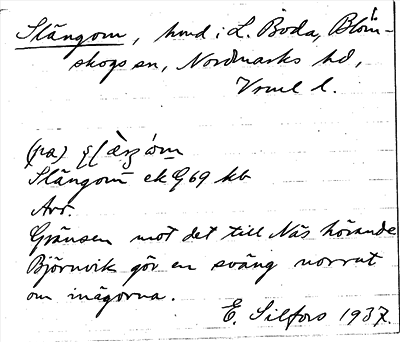 Slängom, hmd i L. Boda, Blom-
skogs sn, Nordmarks hd,
Vrml l.
(pa)
Slängom ek G69 kb
Avr.
Gränsen mot det till Näs hörande
Björnvik gör en sväng norrut
om inägorna.
E. Silfors 1937.